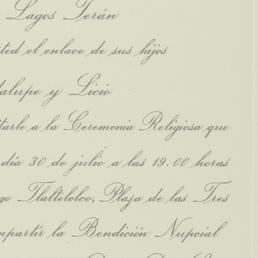 Lagos Terán
ted el enlace de sus hijos
alupe y Licio
tarle a la Ceremonia Religiosa que
día 30 de julio a las 19.00 horas
go Tlaltelolco, Plaza de las Tres
mpartir la Bendición Nupcial